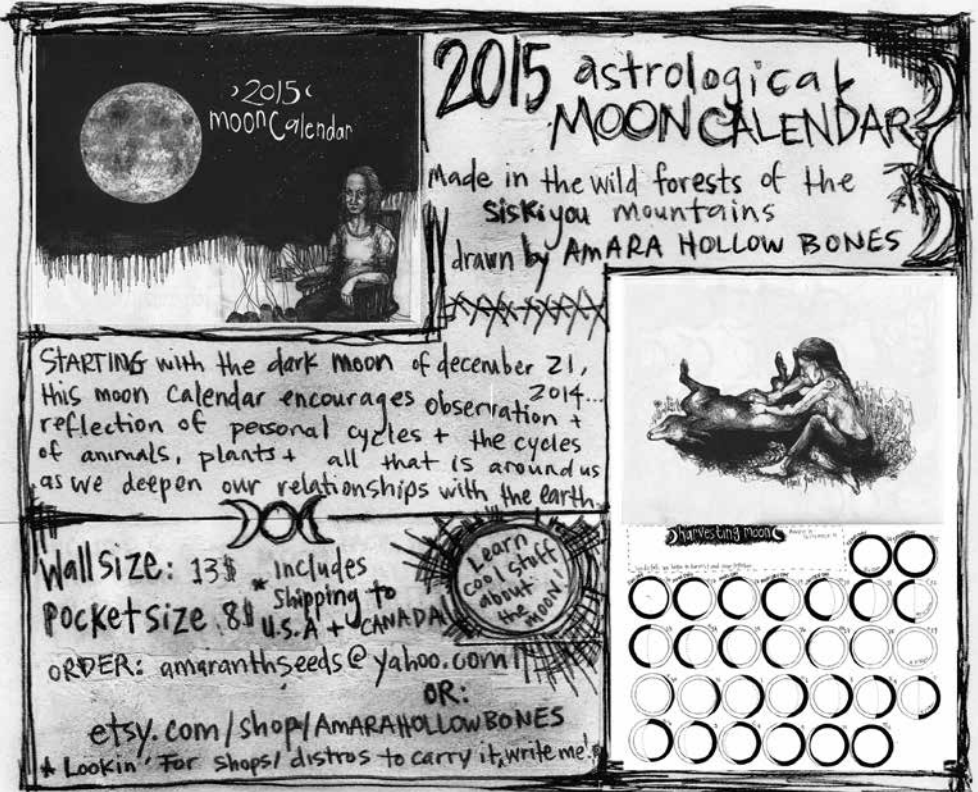 2015
moon Calendar
2015 astrological
MOON CALENDAR
Made in the wild forests of the
Siskiyou mountains
drawn by AMARA HOLLOW BONES
STARTING with the dark moon of december 21,
2014...
this moon Calendar encourages observation +
reflection of personal cycles + the cycles
of animals, plants + all that is around us
as we deepen our relationships with the earth.
Wall size: 13$
Pocket size 8$
* includes
Shipping to
U.S.A + CANADA
Learn
cool stuff
about
the
moon!
ORDER: amaranthseeds@yahoo.com
OR:
etsy.com/shop/AMARAHOLLOWBONES
* Lookin' For shops/distros to carry it, write me!
harvesting moon